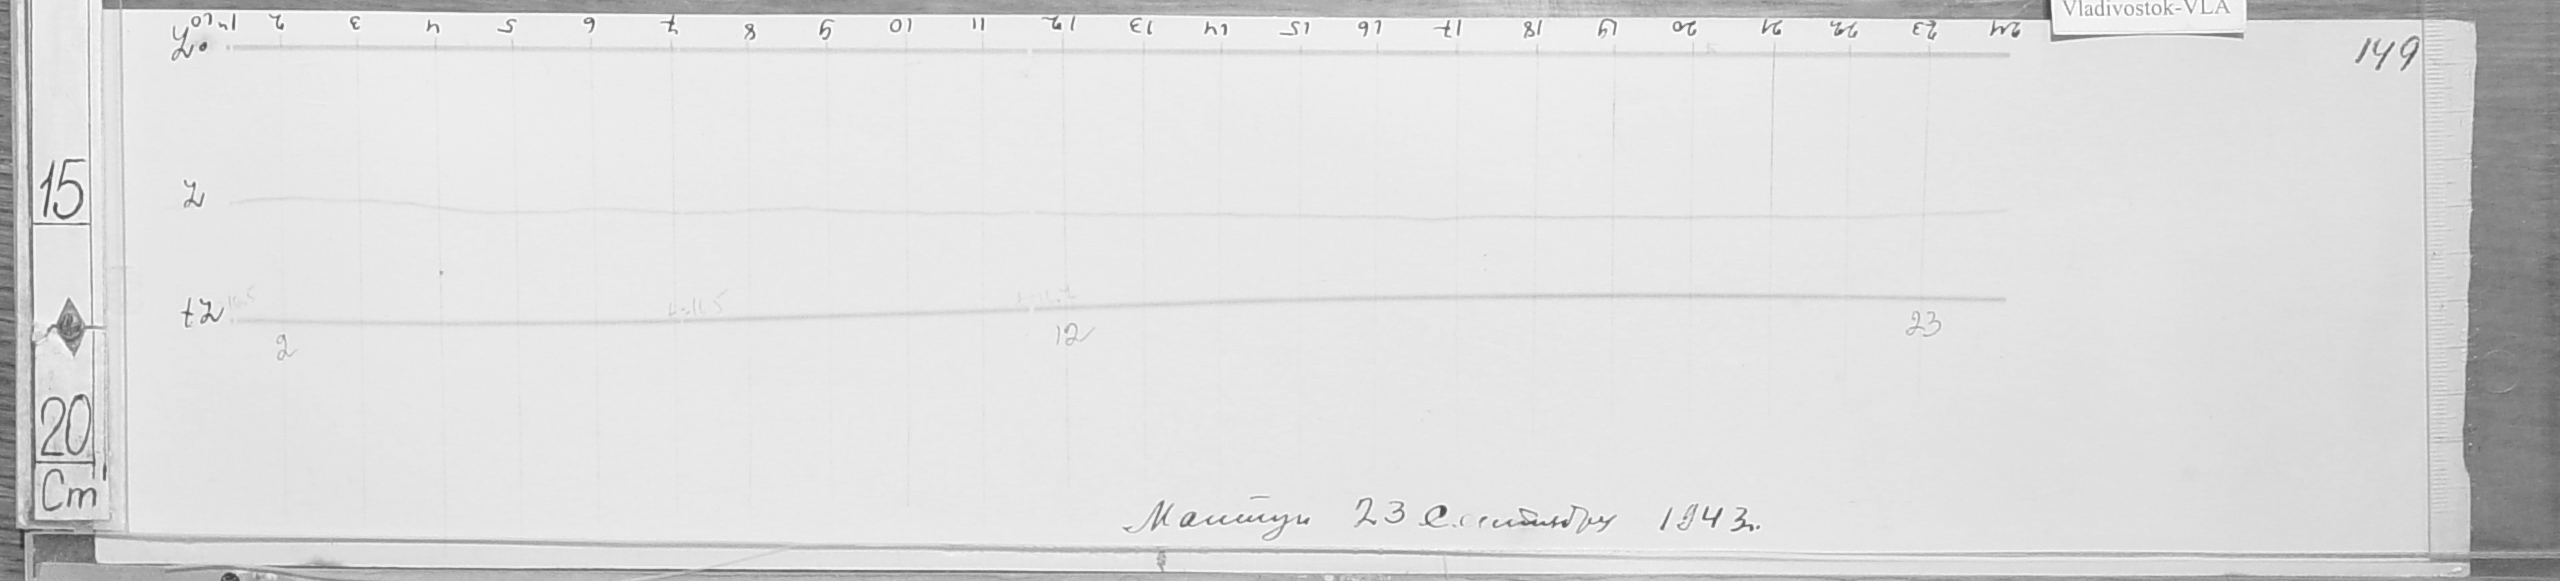 Vladivostok-VLA
149
2 3 4 5 6 7 8 9 10 11 12 13 14 15 16 17 18 19 20 21 22 23 24
Z₀
15
Z
tZ
2 12 23
20
Cm
23 Сентября 1943г.